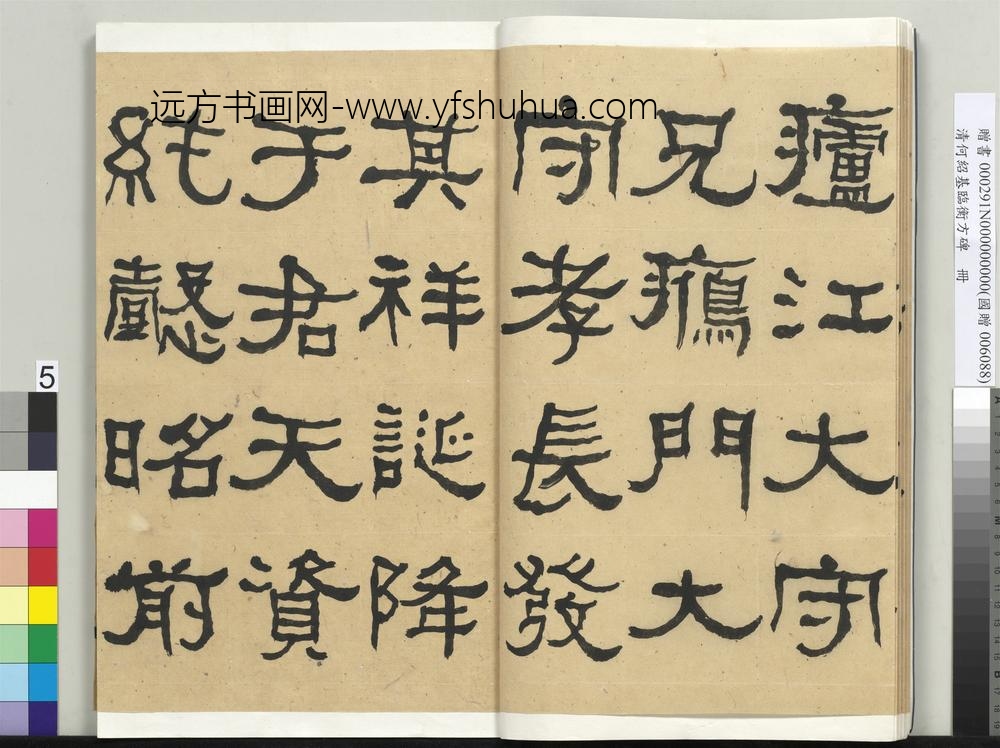 廬江大守
兄鴈門大
守孝長發
其祥誕降
于君天資
純懿昭前
远方书画网-www.yfshuhua.com
贈書 000291N000000000(國贈 006088)
清何紹基臨衡方碑 冊
5